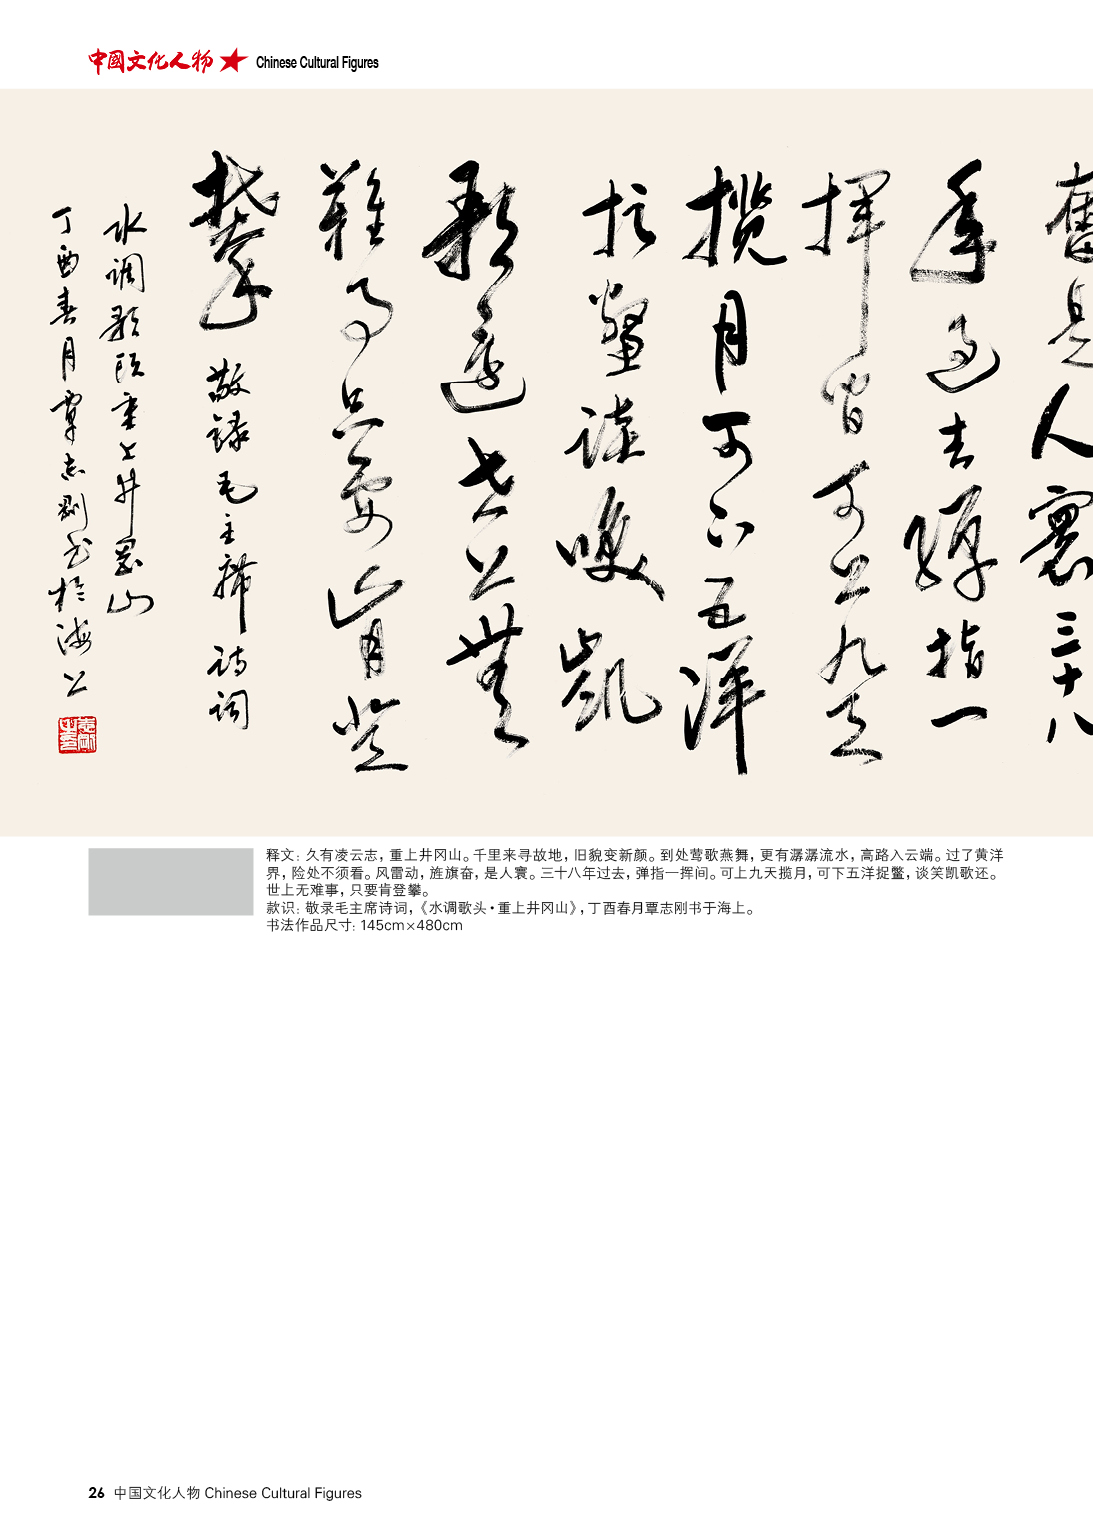 中國文化人物 Chinese Cultural Figures
奮是人寰三十八
年過去彈指一
揮間可上九天
揽月可下五洋
捉鱉談笑凱
歌還世上無
難事只要肯登
攀 敬録毛主席詩詞
水調歌頭重上井岡山
丁酉春月覃志剛书於海上
释文: 久有凌云志，重上井冈山。千里来寻故地，旧貌变新颜。到处莺歌燕舞，更有潺潺流水，高路入云端。过了黄洋
界，险处不须看。风雷动，旌旗奋，是人寰。三十八年过去，弹指一挥间。可上九天揽月，可下五洋捉鳖，谈笑凯歌还。
世上无难事，只要肯登攀。
款识: 敬录毛主席诗词，《水调歌头·重上井冈山》，丁酉春月覃志刚书于海上。
书法作品尺寸: 145cm×480cm
26 中国文化人物 Chinese Cultural Figures